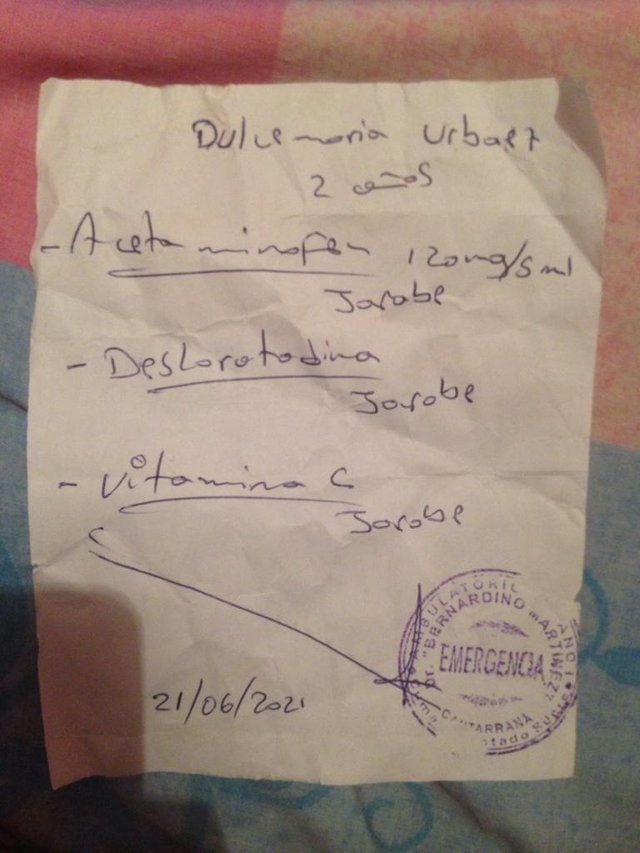 Dulcemaria Urbaez
2 años
- Acetaminofen 120mg/5ml
Jarabe
- Desloratadina
Jarabe
- Vitamina C
Jarabe
21/06/2021
AMBULATORIO
Dr. "BERNARDINO MARTINEZ"
EMERGENCIA
CANTARRANA